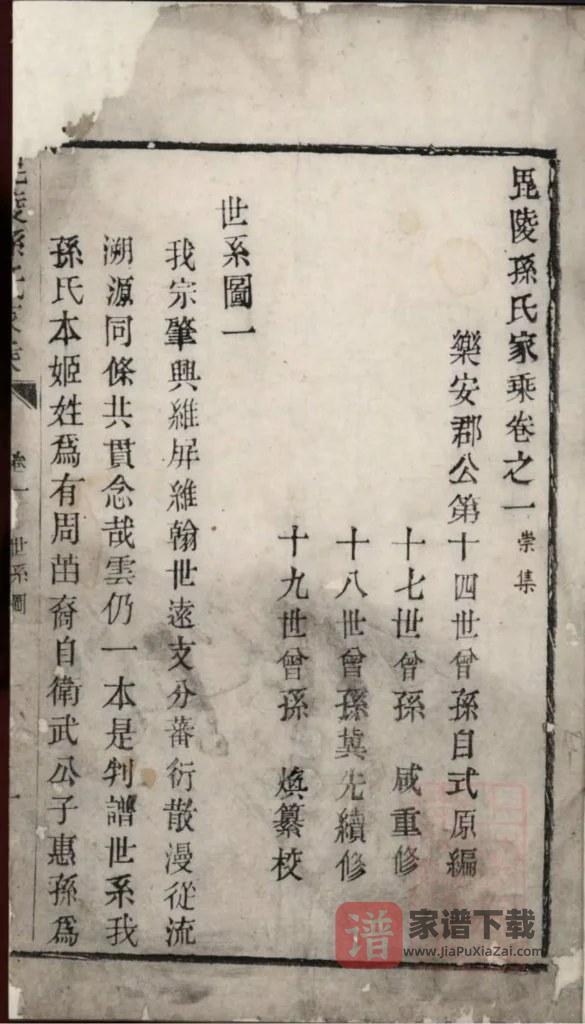 毘陵孫氏家乘卷之一 崇集
樂安郡公第十四世曾孫自式原編
十七世曾孫 咸重修
十八世曾孫蓂先續修
十九世曾孫 煥纂校
世系圖一
我宗肇興維屏維翰世遠支分蕃衍散漫從流
溯源同條共貫念哉雲仍一本是判譜世系我
孫氏本姬姓爲有周苗裔自衛武公子惠孫爲
陵孫氏家乘
卷一 世系圖 一
譜 家谱下载
www.jiaPuXiaZai.com